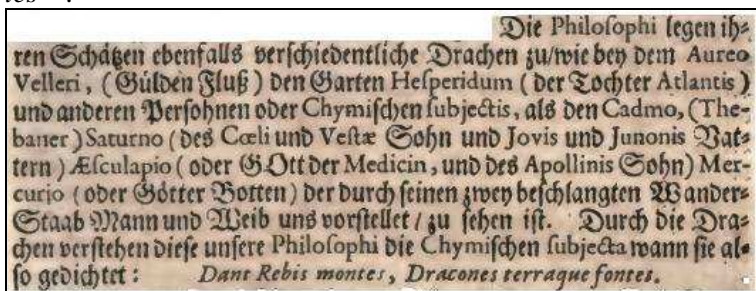 Die Philosophi legen ih-
ren Schätzen ebenfalls verschiedentliche Drachen zu/wie bey dem Aureo
Velleri, (Gülden Fluß) den Garten Hesperidum (der Tochter Atlantis)
und anderen Persohnen oder Chymischen subjectis, als den Cadmo, (The-
baner) Saturno (des Cœli und Vestæ Sohn und Jovis und Junonis Vat-
tern) Æsculapio (oder GOtt der Medicin, und des Apollinis Sohn) Mer-
curio (oder Götter Botten) der durch seinen zwey beschlangten Wander-
Staab Mann und Weib uns vorstellet / zu sehen ist. Durch die Dra-
chen verstehen diese unsere Philosophi die Chymischen subjecta wann sie al-
so gedichtet: Dant Rebis montes, Dracones terraque fontes.